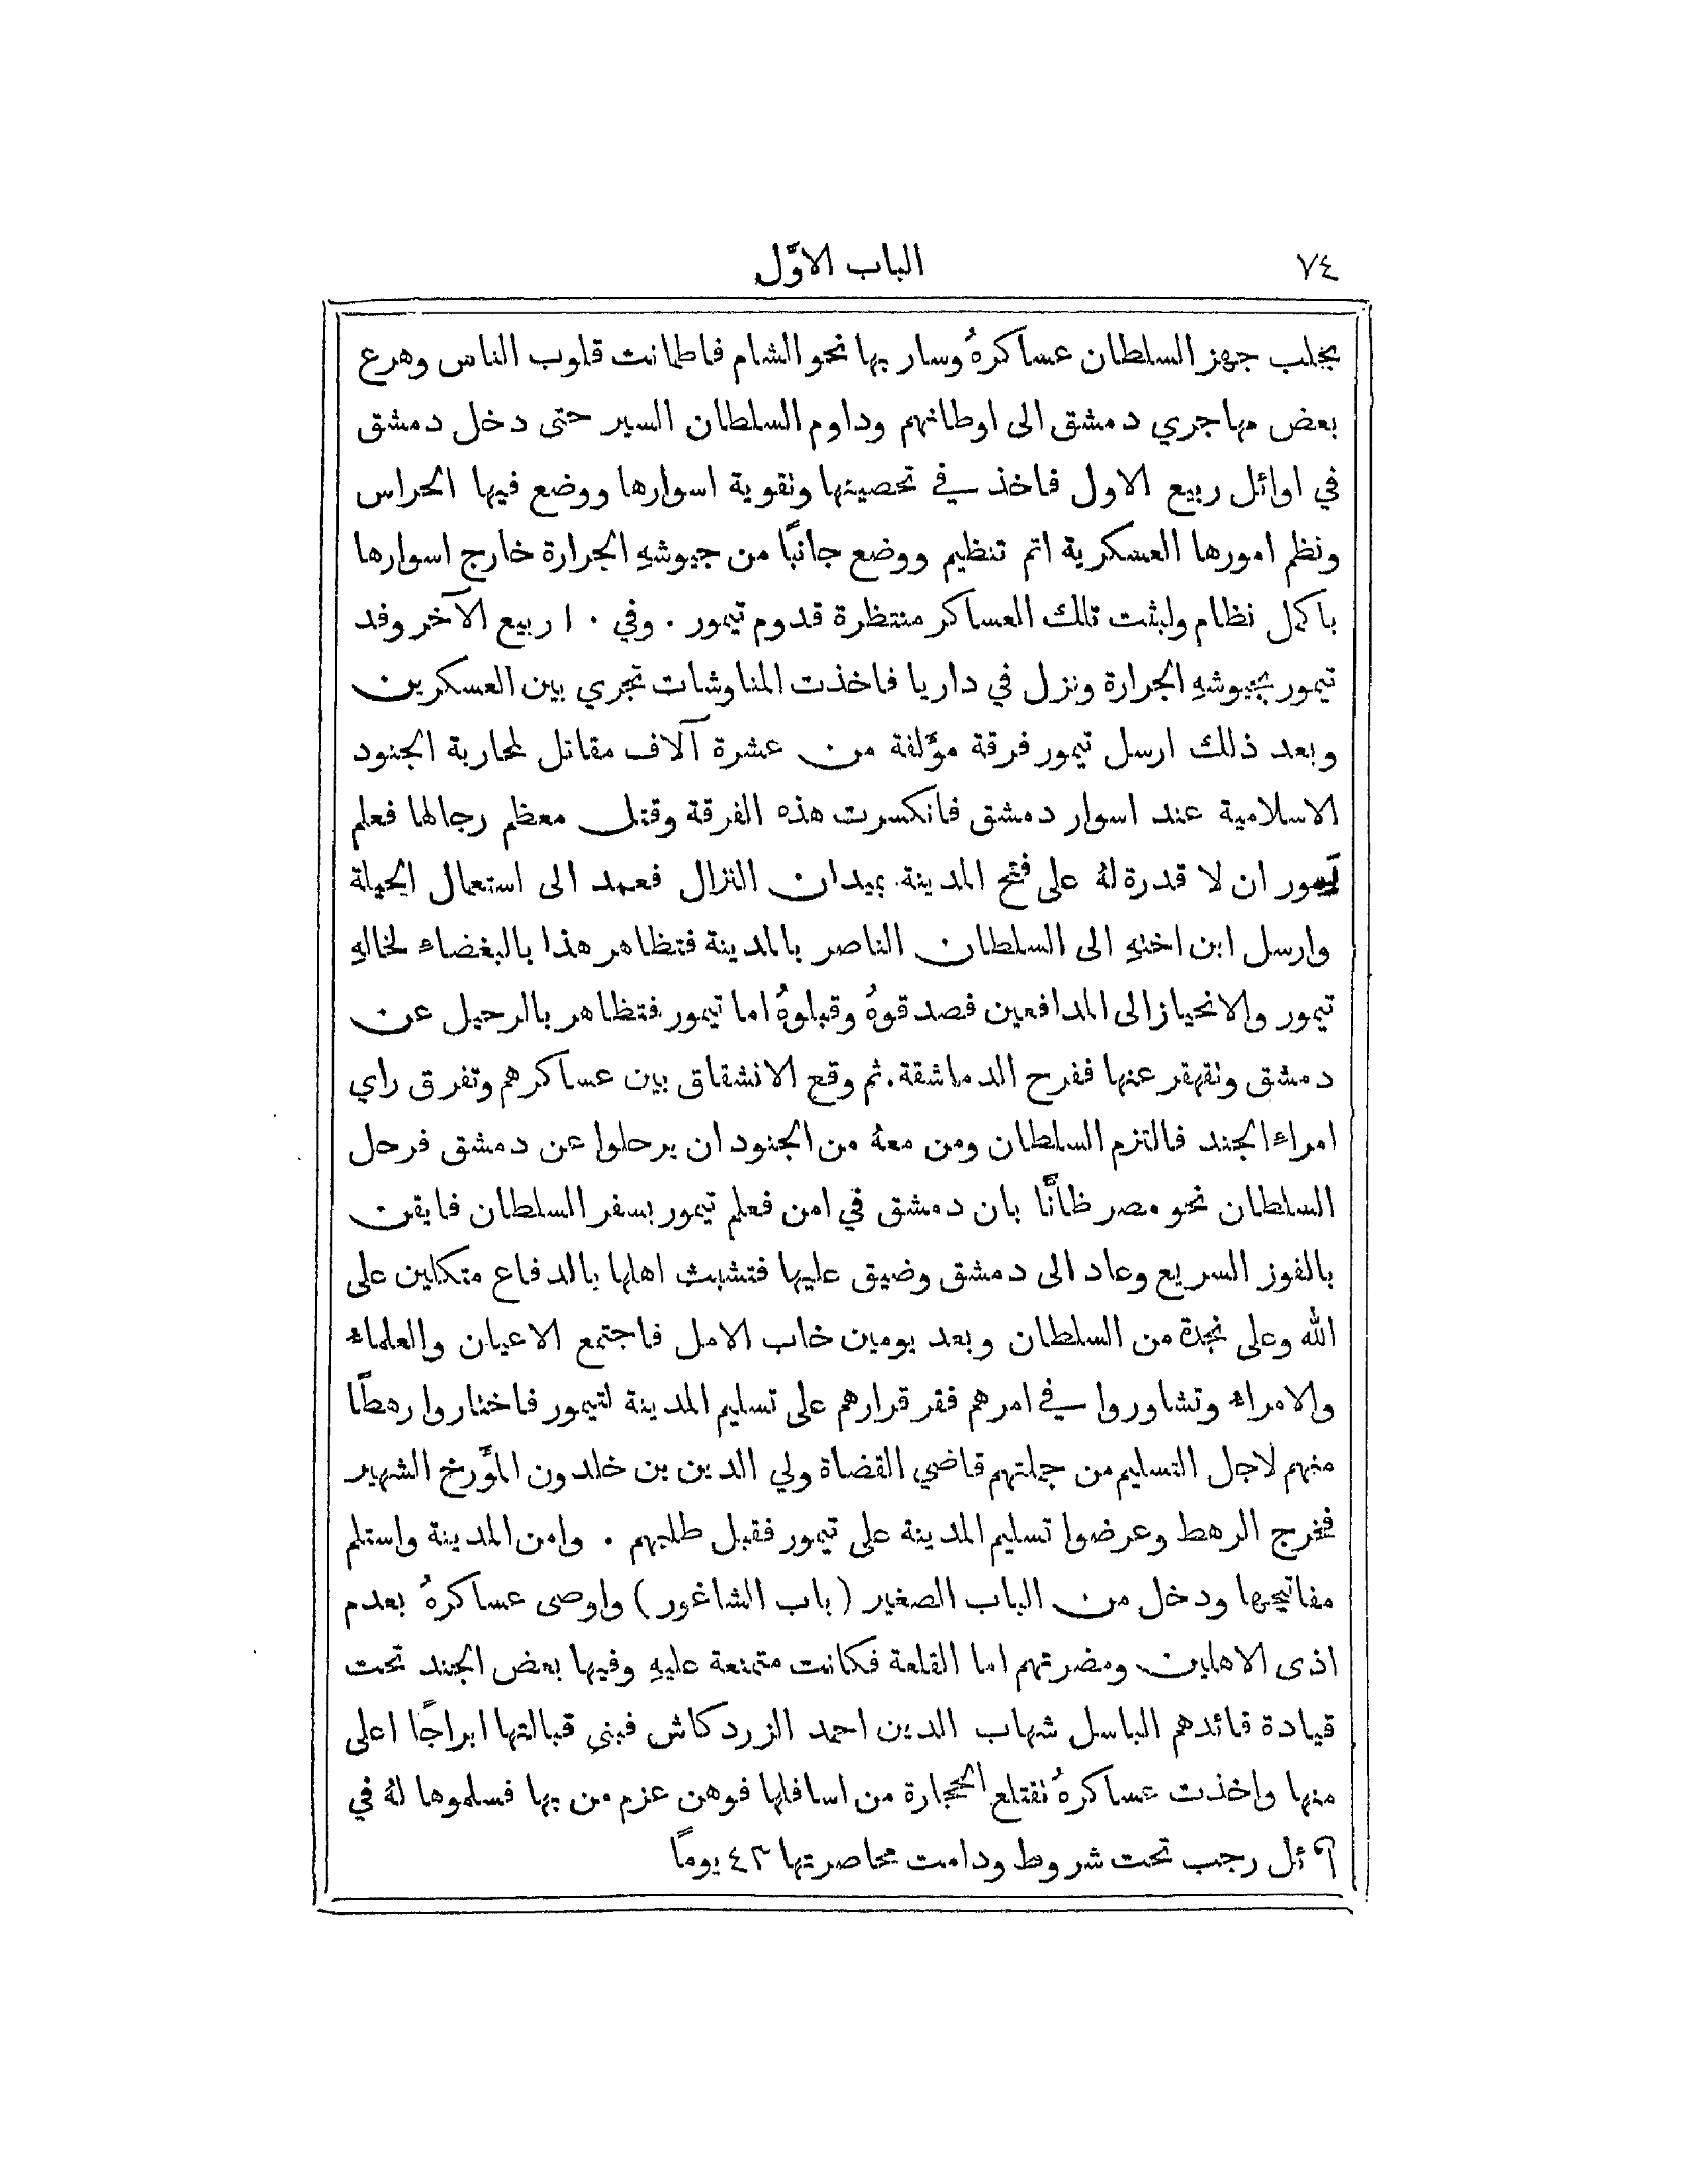 ٧٤
الباب الاوَّل
بحلب جهز السلطان عساكرهُ وسار بها نحو الشام فاطمانت قلوب الناس وهرع
بعض مهاجري دمشق الى اوطانهم وداوم السلطان السير حتى دخل دمشق
في اوائل ربيع الاول فاخذ في تحصينها وتقوية اسوارها ووضع فيها الحراس
ونظم امورها العسكرية اتم تنظيم ووضع جانبًا من جيوشهِ الجرارة خارج اسوارها
باكمل نظام ولبثت تلك العساكر منتظرة قدوم تيمور . وفي ١٠ ربيع الآخر وفد
تيمور بجيوشهِ الجرارة ونزل في داريا فاخذت المناوشات تجري بين العسكرين
وبعد ذلك ارسل تيمور فرقة مؤَلفة من عشرة آلاف مقاتل لمحاربة الجنود
الاسلامية عند اسوار دمشق فانكسرت هذه الفرقة وقتل معظم رجالها فعلم
تيمور ان لا قدرة لهُ على فتح المدينة بميدان النزال فعمد الى استعمال الحيلة
وارسل ابن اختهِ الى السلطان الناصر بالمدينة فتظاهر هذا بالبغضاء لخالهِ
تيمور والانحياز الى المدافعين فصدقوهُ وقبلوهُ اما تيمور فتظاهر بالرحيل عن
دمشق وتقهقر عنها ففرح الدماشقة . ثم وقع الانشقاق بين عساكرهم وتفرق راي
امراء الجند فالتزم السلطان ومن معهُ من الجنود ان يرحلوا عن دمشق فرحل
السلطان نحو مصر ظانًّا بان دمشق في امن فعلم تيمور بسفر السلطان فايقن
بالفوز السريع وعاد الى دمشق وضيق عليها فتشبث اهلها بالدفاع متكلين على
الله وعلى نجدة من السلطان وبعد يومين خاب الامل فاجتمع الاعيان والعلماء
والامراء وتشاوروا في امرهم فقر قرارهم على تسليم المدينة لتيمور فاختاروا رهطًا
منهم لاجل التسليم من جملتهم قاضي القضاة ولي الدين بن خلدون المؤَرخ الشهير
فخرج الرهط وعرضوا تسليم المدينة على تيمور فقبل طلبهم . وامن المدينة واستلم
مفاتيحها ودخل من الباب الصغير ( باب الشاغور ) واوصى عساكرهُ بعدم
اذى الاهلين ومضرتهم اما القلعة فكانت متمنعة عليهِ وفيها بعض الجند تحت
قيادة قائدهم الباسل شهاب الدين احمد الزردكاش فبنى قبالتها ابراجًا اعلى
منها واخذت عساكرهُ تقتلع الحجارة من اسافلها فوهن عزم من بها فسلموها لهُ في
رجب تحت شروط ودامت محاصرتها ٤٣ يومًا